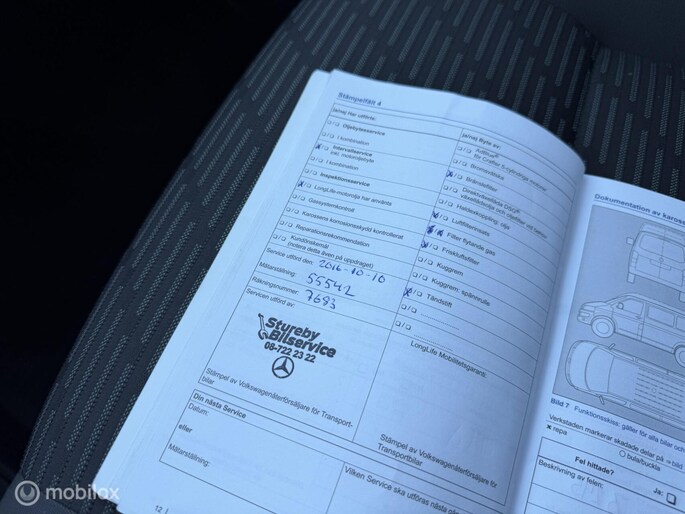 Stämpelfält 4
ja/nej Har utförts:
❑/❑ Oljebytesservice
❑/❑ I kombination
x/❑ Intervallservice
inkl. motoroljebyte
❑/❑ I kombination
❑/❑ Inspektionsservice
x/❑ LongLife-motorolja har använts
❑/❑ Genomsiktskontroll
❑/❑ Karossens korrosionsskydd kontrollerat
❑/❑ Reparationsrekommendation
❑/❑ Kundönskemål
(notera detta även på uppdraget)
Service utförd den: 2016-10-10
Mätarställning: 55542
Räkningsnummer: 7683
Servicen utförd av:
Stureby
Bilservice
08-722 23 22
Stämpel av Volkswagenåterförsäljare för Transport-
bilar
Din nästa Service
Datum:
eller
Mätarställning:
12
ja/nej Byte av:
❑/❑ Bromsvätska
x/❑ Bränslefilter
❑/❑ Haldexkoppling: olja
x/❑ Luftfilterinsats
x/x Filter flytande gas
x/❑ Friskluftsfilter
❑/❑ Kuggrem
❑/❑ Kuggrem: spännrulle
x/❑ Tändstift
❑/❑
❑/❑
LongLife Mobilitetsgaranti:
Stämpel av Volkswagenåterförsäljare för
Transportbilar
Vilken Service ska utföras nästa gång
Dokumentation av kaross
Bild 7 Funktionsskiss: gäller för alla bilar och
Verkstaden markerar skadade delar på → bild
x repa
○ bula/buckla
Fel hittade?
Ja: ❑
Beskrivning av felen:
mobilox